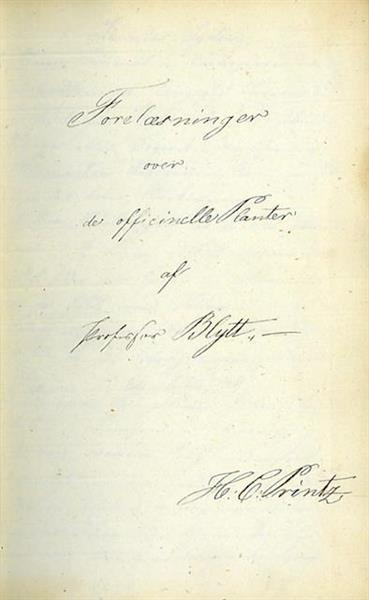 Forelæsninger
over
de officinelle Planter
af
Professor Blytt. —
H. C. Printz